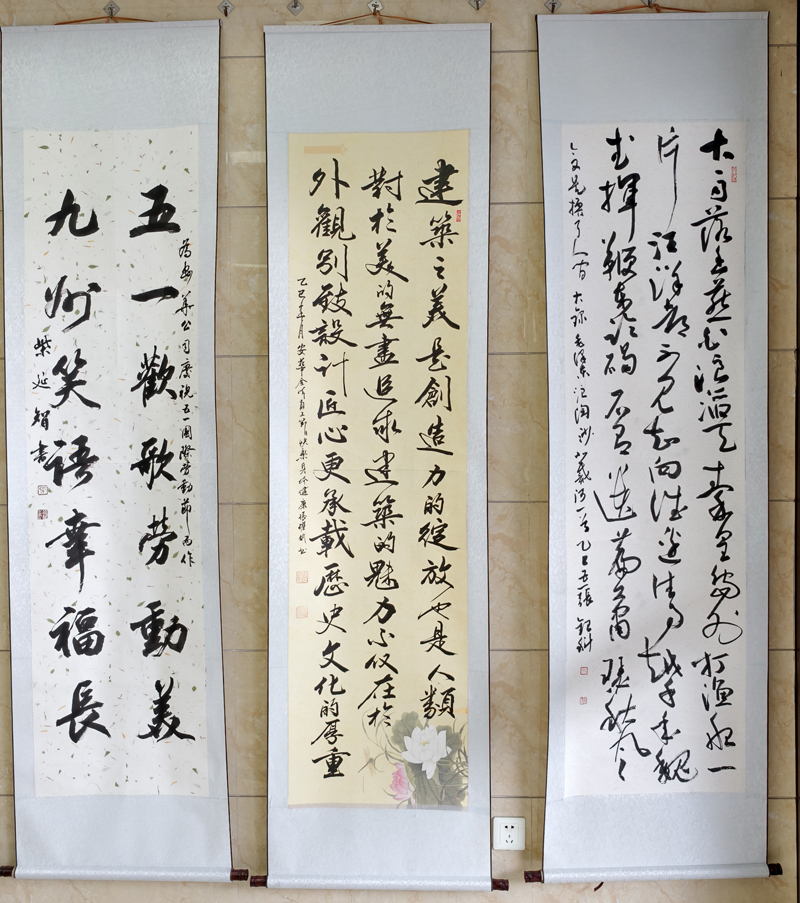 大雨落幽燕白浪滔天秦皇岛外打渔船一
片汪洋都不见知向谁边往事越千年魏
武揮鞭東临碣石有遗篇萧瑟秋風
今又是换了人间 毛泽东浪淘沙北戴河一首 乙巳
建築之美是創造力的綻放也是人類
對於美的無盡追求建築的魅力不仅在於
外觀別致設計匠心更承載歷史文化的厚重
乙巳年 月安華
五一歡歌勞動美
為安華公司慶祝五一國際勞動節而作
九州笑語幸福長
柴延智書